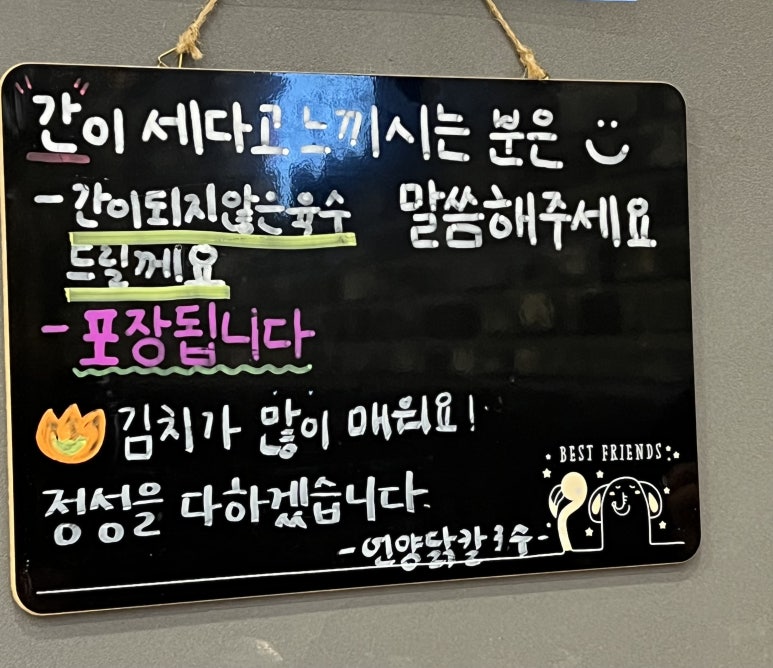 "간"이 세다고 느끼시는 분은
말씀해주세요
- 간이되지않은육수
드릴께요
- 포장됩니다
김치가 많이 매워요!
정성을 다하겠습니다.
BEST FRIENDS
- 언양닭칼국수 -